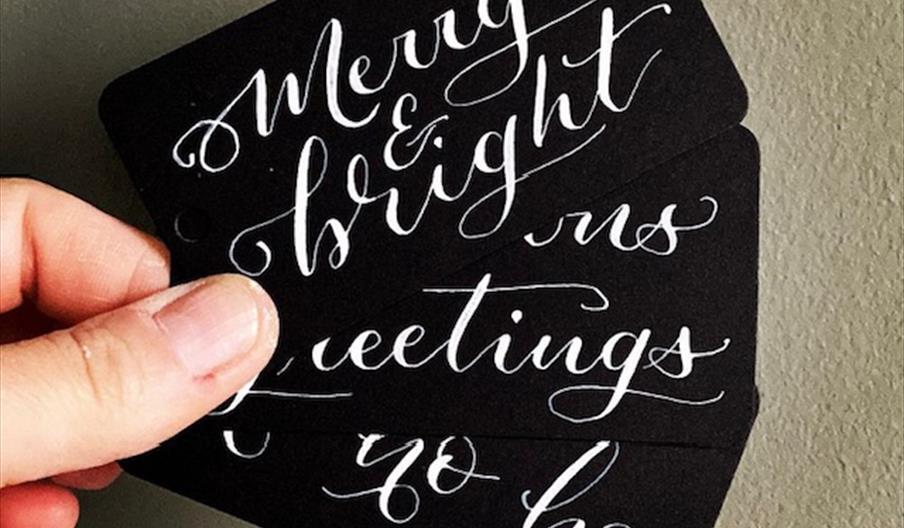 Merry
&
bright
greetings